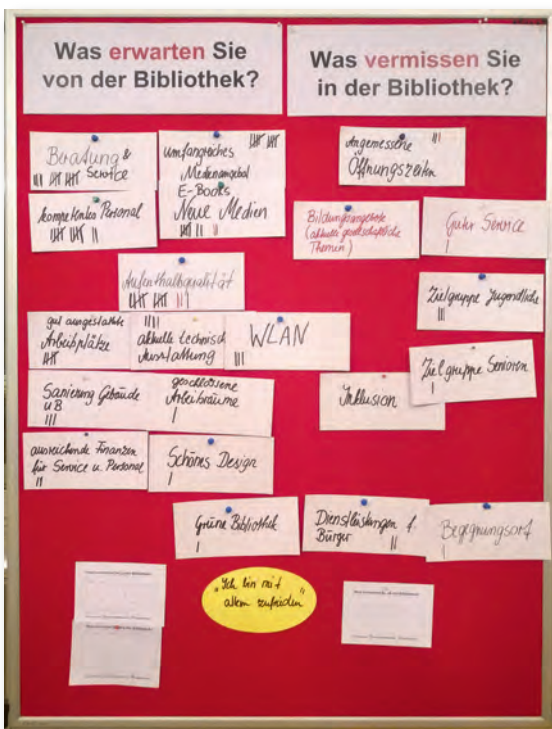 Was erwarten Sie
von der Bibliothek?
Was vermissen Sie
in der Bibliothek?
Beratung &
Service
kompetentes Personal
umfangreiches
Medienangebot
E-Books
Neue Medien
Aufenthaltsqualität
gut ausgestattete
Arbeitsplätze
aktuelle technisch
Ausstattung
WLAN
Sanierung Gebäude
UB
geschlossene
Arbeitsräume
ausreichende Finanzen
für Service u. Personal
Schönes Design
Grüne Bibliothek
Angemessene
Öffnungszeiten
Bildungsangebote
(aktuelle gesellschaftliche
Themen)
Guter Service
Zielgruppe Jugendliche
Zielgruppe Senioren
Inklusion
Dienstleistungen f.
Bürger
Begegnungsort
"Ich bin mit
allem zufrieden"